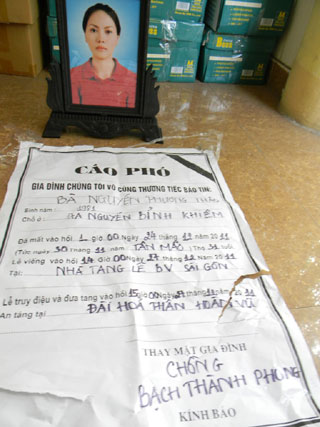 CÁO PHÓ
GIA ĐÌNH CHÚNG TÔI VÔ CÙNG THƯƠNG TIẾC BÁO TIN:
BÀ NGUYỄN PHƯƠNG THẢO
Sinh năm
Chỗ ở: NGUYỄN BỈNH KHIÊM
Đã mất vào hồi 1 giờ 00 24 tháng 12 năm 2011
(Tức ngày 30 tháng 11 năm TÂN MÃO) Thọ 31 tuổi
Lễ viếng vào hồi 14 giờ 00 ngày 27 tháng 12 năm 2011
Tại: NHÀ TANG LỄ BV SÀI GÒN
Lễ truy điệu và đưa tang vào hồi 15 giờ 00 ngày 27 tháng năm 2011
An táng tại ĐÀI HOÁ THÂN HOÀN VŨ
THAY MẶT GIA ĐÌNH
CHỒNG
BẠCH THÀNH PHONG
KÍNH BÁO